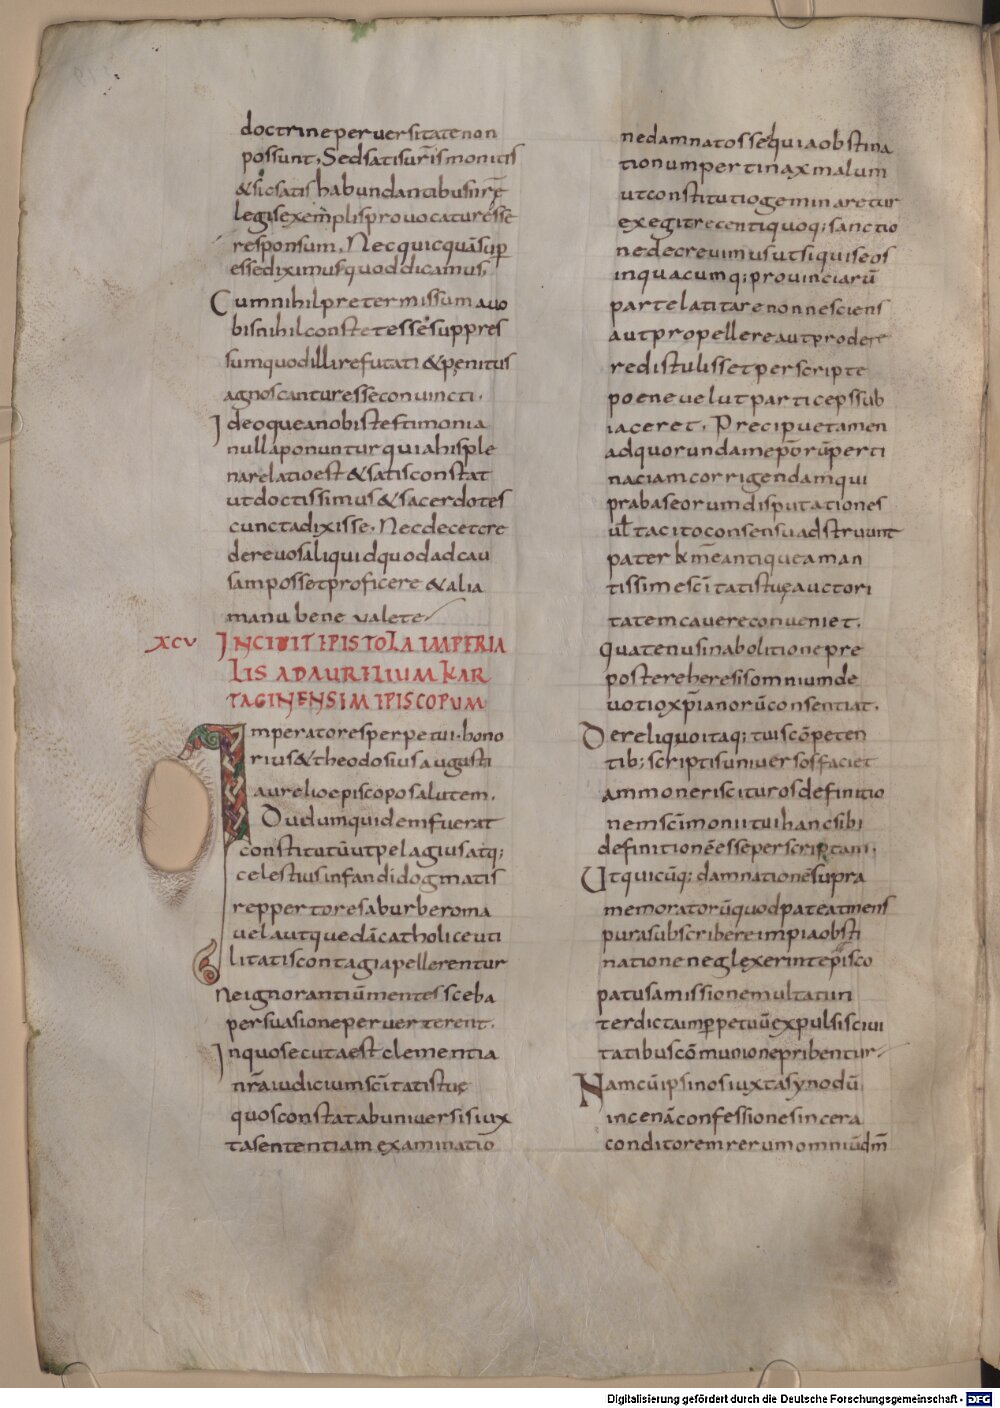 doctrine perversitate non
possunt, Sed satis uris monitis
& sic satis habundantibus nrē
legis exemplis provocatur esse
responsum. Nec quicquā sup
esse diximus quod dicamus,
Cum nihil pretermissum a vo
bis nihil constet esse suppres
sum quod illi refutati & penitus
agnoscantur esse convincti.
Ideoque a nobis testimonia
nulla ponuntur quia his ple
na relatio est & satis constat
ut doctissimus & sacerdotes
cuncta dixisse. Nec decet cre
dere vos aliquid quod ad cau
sam posset proficere & alia
manu bene valete
XCV INCIPIT EPISTOLA IMPERIA
LIS AD AURELIUM KAR
TAGINENSIM EPISCOPUM
Imperatores perpetui. hono
rius & theodosius augusti
aurelio episcopo salutem.
Dudum quidem fuerat
constitutū ut pelagius atq;
celestius infandi dogmatis
reppertores ab urbe roma
vel aut quedā catholice uti
litatis contagia pellerentur
Ne ignorantiū mentes sceba
persuasione perverterent.
In quo secuta est clementia
nr̄a iudicium scītatis tuę
quos constat ab universis iux
ta sententiam examinatiō
ne damnatos sed quia obstina
tionum pertinax malum
ut constitutio geminaretur
exegit recenti quoq; sanctio
ne decrevimus ut si quis eos
in quacumq; provinciarū
parte latitare non nesciens
aut propellere aut prodere
redistulisset perscripte
poene velut particeps sub
iaceret. Precipue tamen
ad quorundam epōrū perti
naciam corrigendam qui
praba seorum disputationes
vl tacito consensu adstruunt
pater km̄e antique aman
tissime scītatis tuę auctori
tatem cavere conveniet.
Quatenus in abolitione pre
postere heresis omnium de
votio xp̄ianorū consentiat.
De reliquo itaq; tuis cōpeten
tib; scriptis universos faciet
ammoneri scituros definitio
nem scīmonii tui hanc sibi
definitionē esse perscriptam.
Ut quicūq; damnationē supra
memoratorū quod pateat mens
pura subscribere impia obsti
natione neglexerint episco
patus amissione multatun
terdicta imperpetuū expulsi civi
tatibus cōmunione pribentur
Nam cū ipsi nos iuxta synodū
incenā confessione sincera
conditorem rerum omniū dm̄